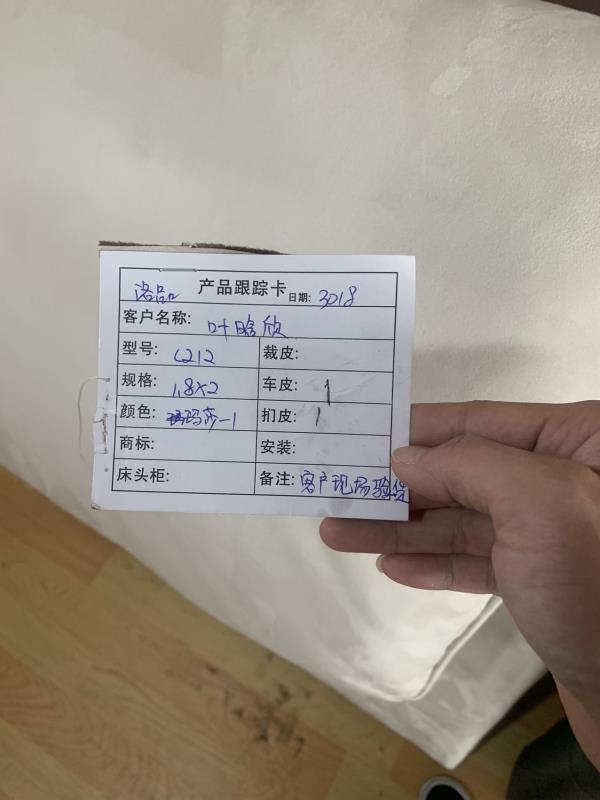 洛品 产品跟踪卡 日期: 3018
客户名称: 叶晗欣
型号: C212 裁皮:
规格: 1.8×2 车皮: 1
颜色: 玛莎-1 扪皮: 1
商标: 安装:
床头柜: 备注: 客户现场验货